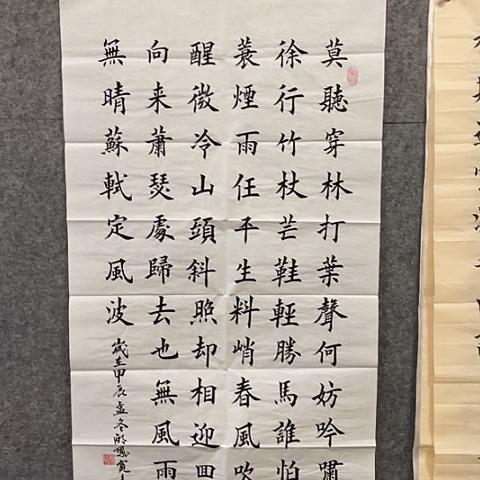 莫聽穿林打葉聲何妨吟嘯
徐行竹杖芒鞋輕勝馬誰怕
蓑煙雨任平生料峭春風吹
醒微冷山頭斜照却相迎回
向来蕭瑟處歸去也無風雨
無晴蘇軾定風波
歲在甲辰孟冬